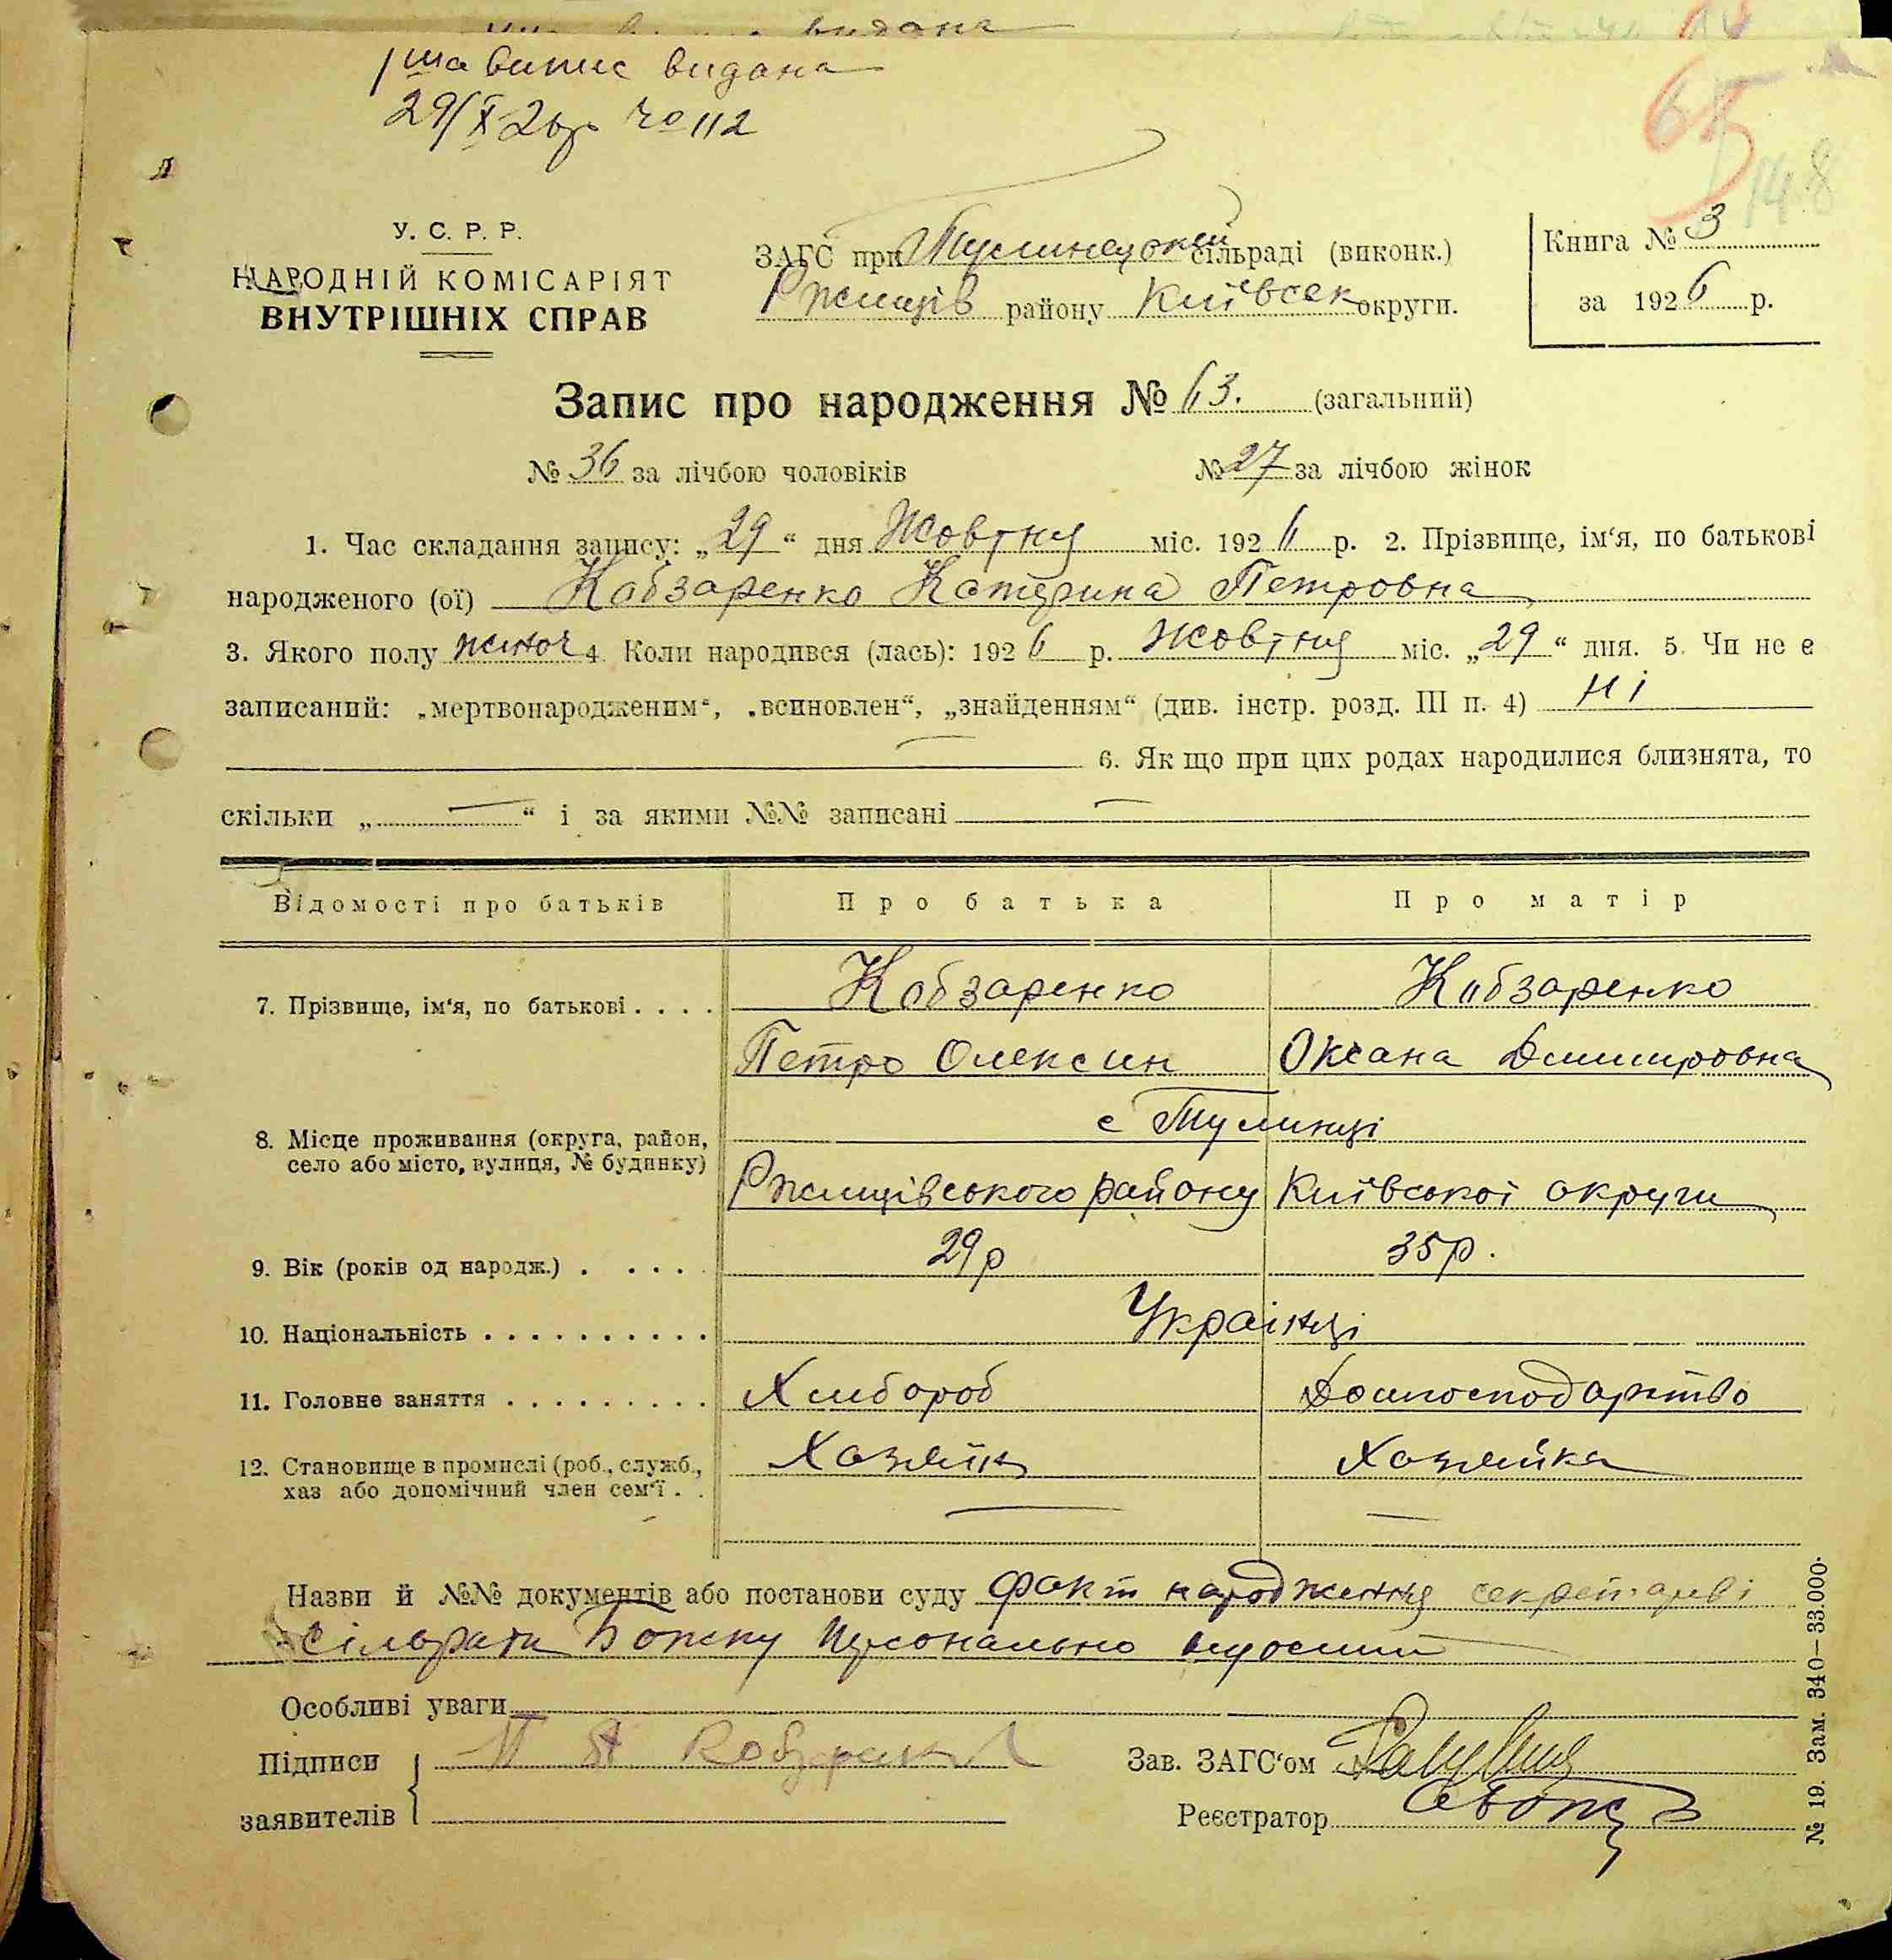 видана
1ша випис видана
29/X 26р № 112
65
148
У. С. Р. Р.
НАРОДНІЙ КОМІСАРІЯТ
ВНУТРІШНІХ СПРАВ
ЗАГС при Тулинецокій сільраді (виконк.)
Ржищів району Київсек округи.
Книга № 3
за 1926 р.
Запис про народження № 63. (загальний)
№ 36 за лічбою чоловіків № 27 за лічбою жінок
1. Час складання запису: „29“ дня Жовтня міс. 1926 р. 2. Прізвище, ім‘я, по батькові
народженого (ої) Кабзаренко Катерина Петровна
3. Якого полу жіноч 4. Коли народився (лась): 1926 р. Жовтня міс. „29“ дня. 5. Чи не є
записаний: „мертвонародженим“, „всиновлен“, „знайденням“ (див. інстр. розд. III п. 4) Ні
— 6. Як що при цих родах народилися близнята, то
скільки „—“ і за якими №№ записані —
Відомості про батьків Про батька Про матір
7. Прізвище, ім‘я, по батькові . . . . Кабзаренко Кабзаренко
Петро Олексин Оксана Дмитровна
8. Місце проживання (округа, район, с Тулинці
село або місто, вулиця, № будинку) Ржищівського району Київської округи
9. Вік (років од народж.) . . . . . 29р 35р.
10. Національність . . . . . . . . . . Українці
11. Головне заняття . . . . . . . . . Хлибороб Домгосподарство
12. Становище в промислі (роб., служб., Хазяїн Хазяйка
хаз або допомічний член сем‘ї . . — —
Назви й №№ документів або постанови суду факт народження секретареві
сільради Божку персонально
Особливі уваги
Підписи П Кобзаренко Зав. ЗАГС‘ом
заявителів Реєстратор
№ 19. Зам. 340—33.000.